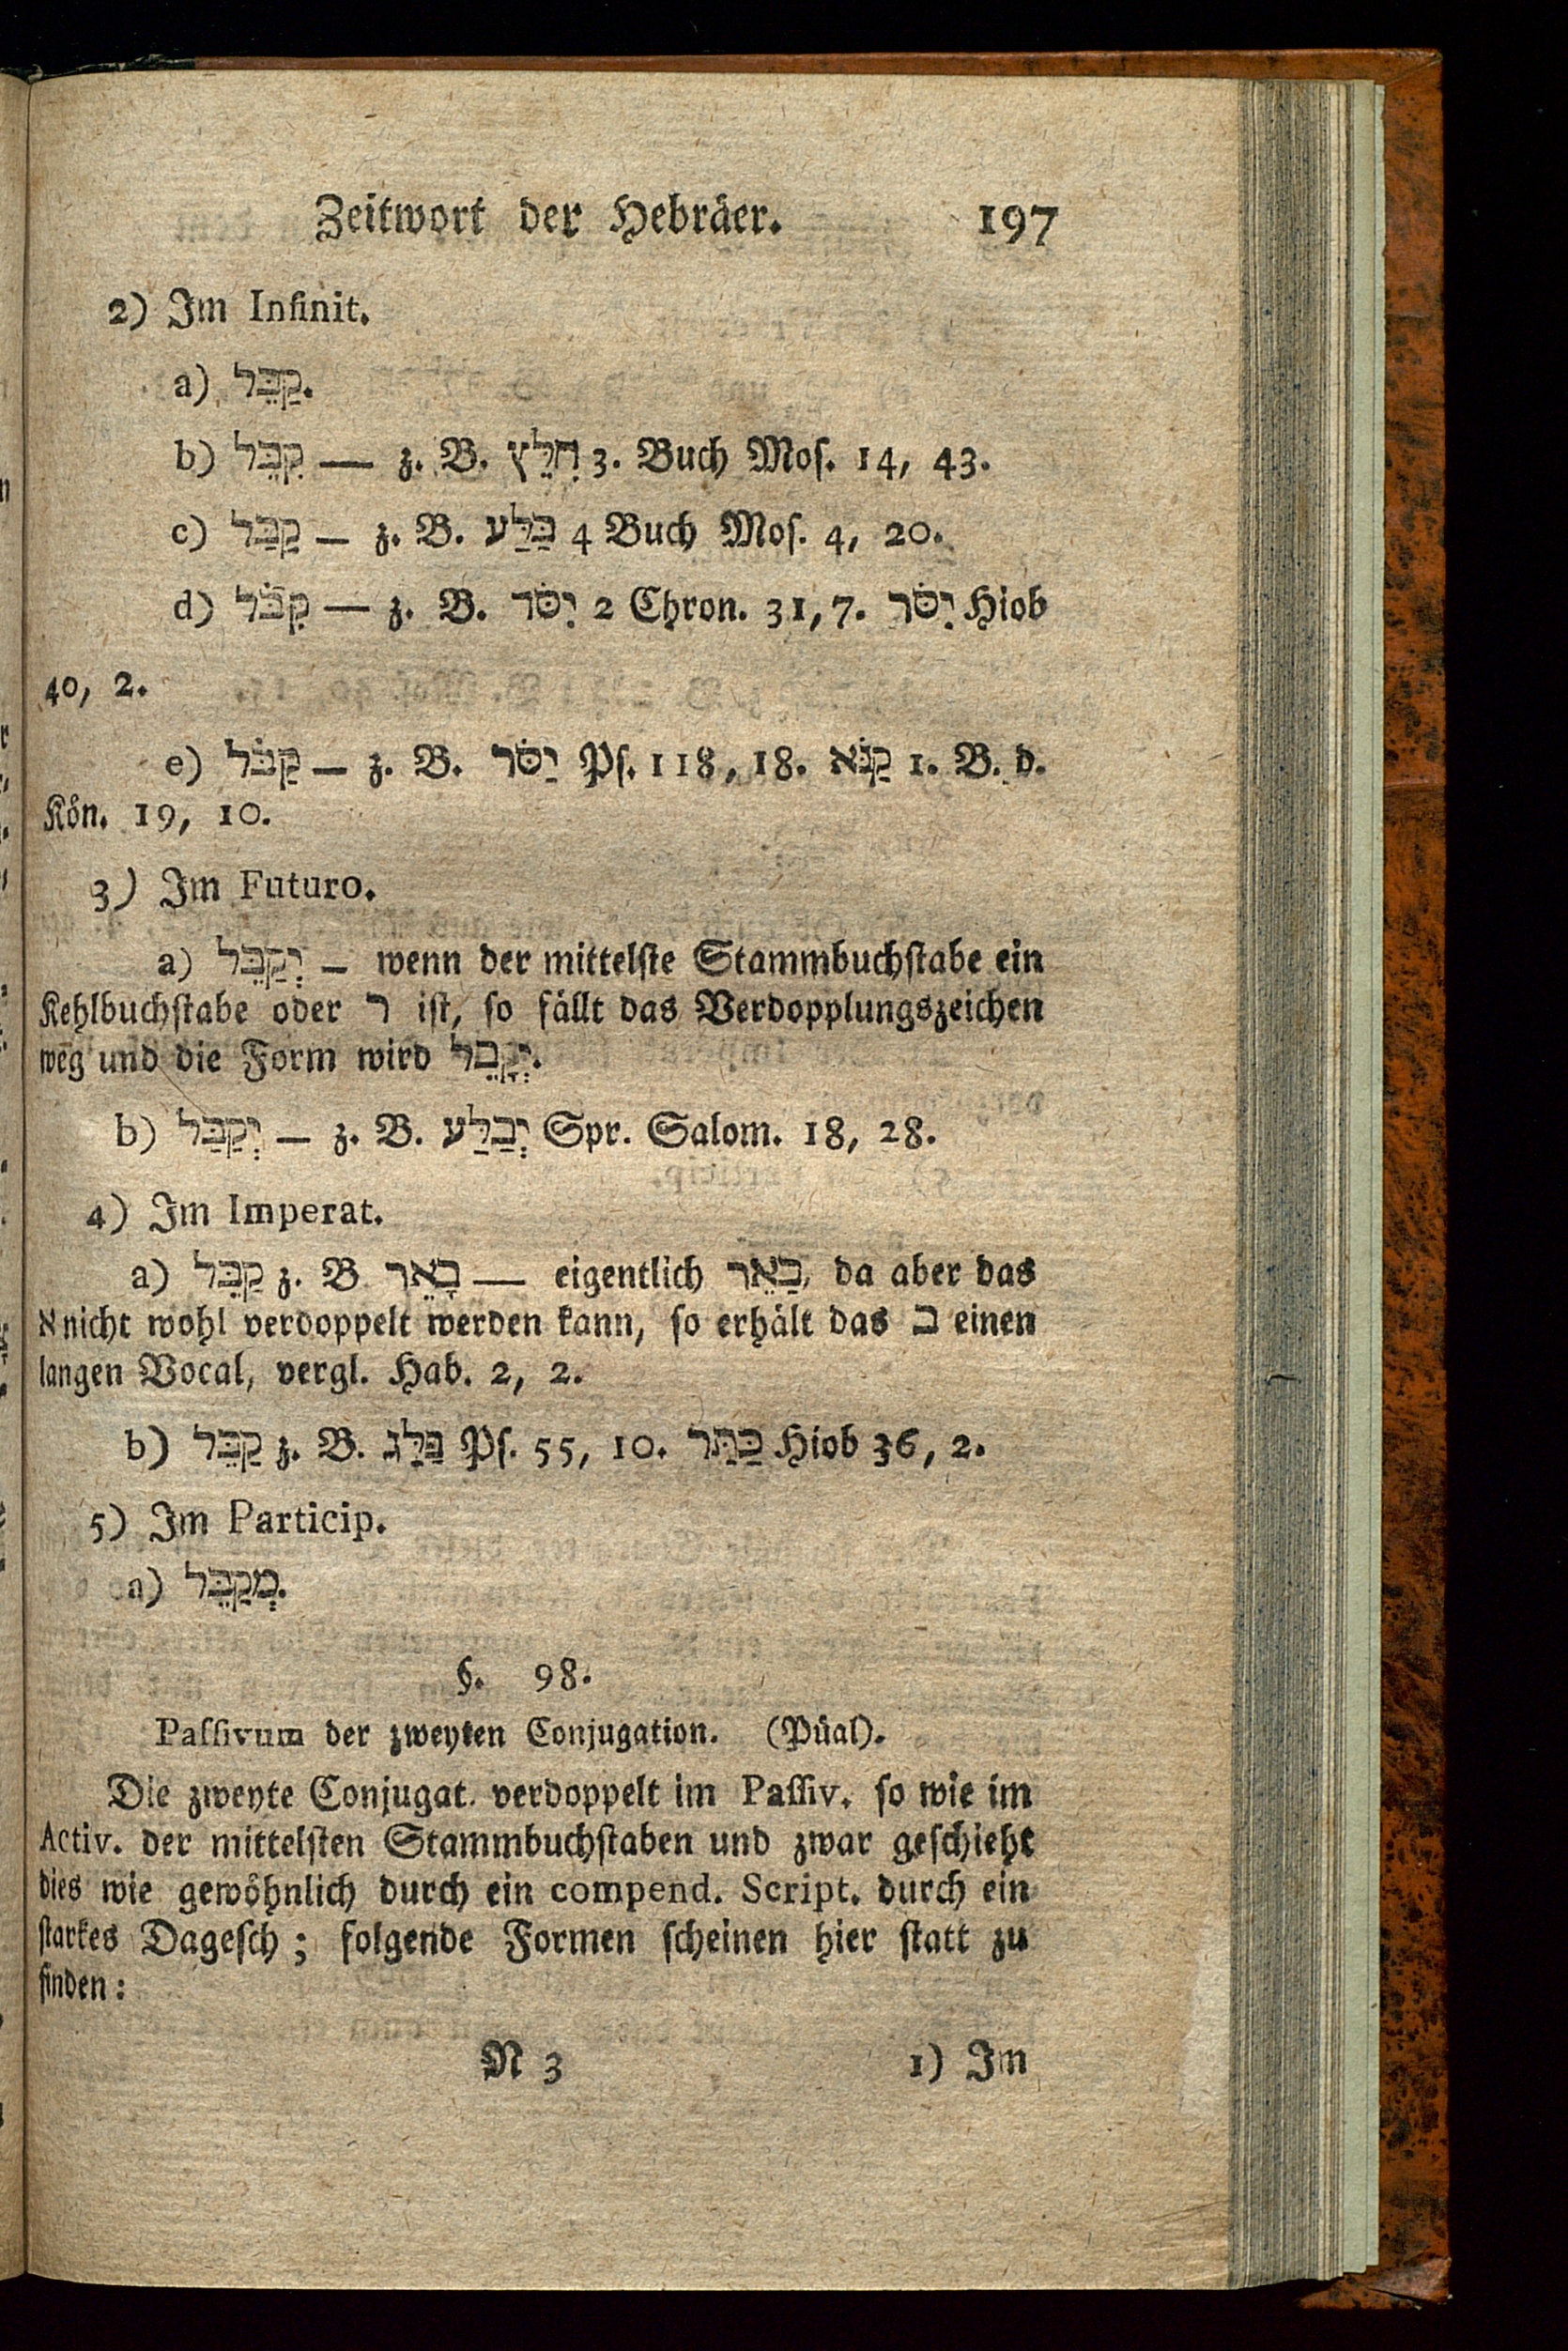 Zeitwort der Hebräer. 197
2) Im Infinit.
a) קַבֵּל.
b) קִבֵּל — z. B. חִלֵּץ 3. Buch Mos. 14, 43.
c) קַבַּל — z. B. בַּלַּע 4 Buch Mos. 4, 20.
d) קִבֹּל — z. B. יִסֹּר 2 Chron. 31, 7. יִסֹּר Hiob
40, 2.
e) קַבֹּל — z. B. יַסֹּר Ps. 118, 18. קַנֹּא 1. B. d.
Kön. 19, 10.
3) Im Futuro.
a) יְקַבֵּל — wenn der mittelste Stammbuchstabe ein
Kehlbuchstabe oder ר ist, so fällt das Verdopplungszeichen
weg und die Form wird יְקָבֵל.
b) יְקַבַּל — z. B. יְבַלַּע Spr. Salom. 18, 28.
4) Im Imperat.
a) קַבֵּל z. B בָאֵר — eigentlich בַּאֵּר, da aber das
א nicht wohl verdoppelt werden kann, so erhält das ב einen
langen Vocal, vergl. Hab. 2, 2.
b) קַבֵּל z. B. בַּלַּג Ps. 55, 10. כַּתַּר Hiob 36, 2.
5) Im Particip.
a) מְקַבֵּל.
§. 98.
Passivum der zweyten Conjugation. (Püal).
Die zweyte Conjugat. verdoppelt im Passiv. so wie im
Activ. der mittelsten Stammbuchstaben und zwar geschieht
dies wie gewöhnlich durch ein compend. Script. durch ein
starkes Dagesch; folgende Formen scheinen hier statt zu
finden:
N 3 1) Im